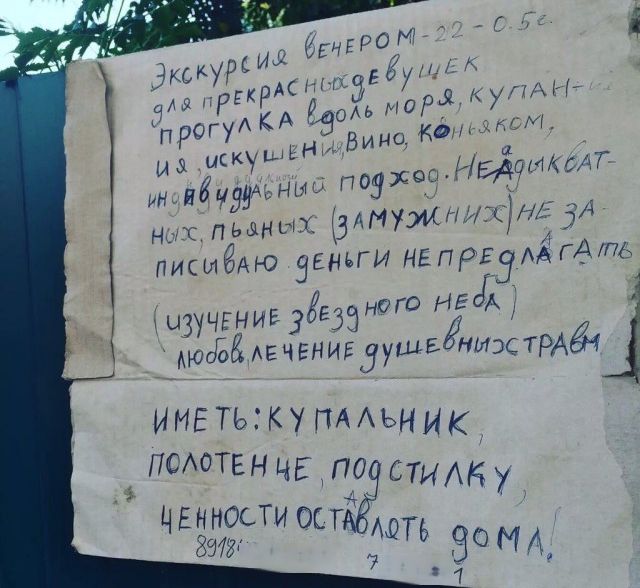 Экскурсия вечером - 22 - 0.5 г.
для прекрасных девушек
прогулка вдоль моря, купан-
ия, искушения, вино, коньяком,
индивидуальный подход. Неадыкват-
ных, пьяных (замужних) не за-
писываю деньги не предлагать
(изучение звездного неба)
любовь, лечение душевных травм
иметь: купальник,
полотенце, подстилку,
ценности оставлять дома!
8918
7 1